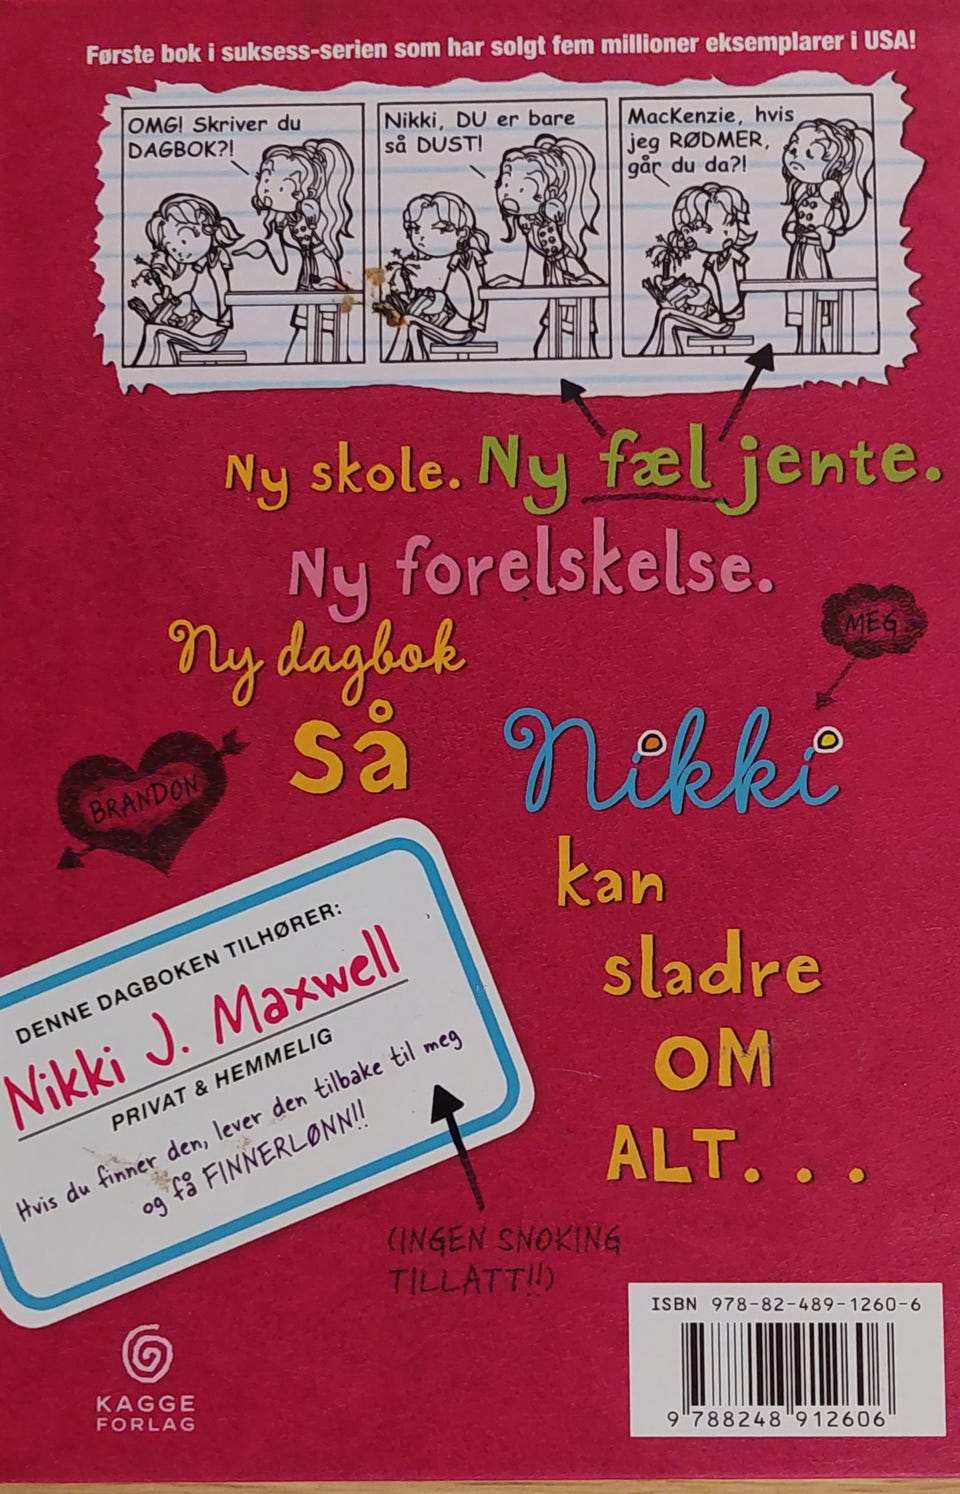 Første bok i suksess-serien som har solgt fem millioner eksemplarer i USA!
OMG! Skriver du
DAGBOK?!
Nikki, DU er bare
så DUST!
MacKenzie, hvis
jeg RØDMER,
går du da?!
Ny skole. Ny fæl jente.
Ny forelskelse.
Ny dagbok
MEG
Så Nikki
BRANDON
kan
sladre
OM
ALT...
DENNE DAGBOKEN TILHØRER:
Nikki J. Maxwell
PRIVAT & HEMMELIG
Hvis du finner den, lever den tilbake til meg
og få FINNERLØNN!!
(INGEN SNOKING
TILLATT!!)
KAGGE
FORLAG
ISBN 978-82-489-1260-6
9 788248 912606